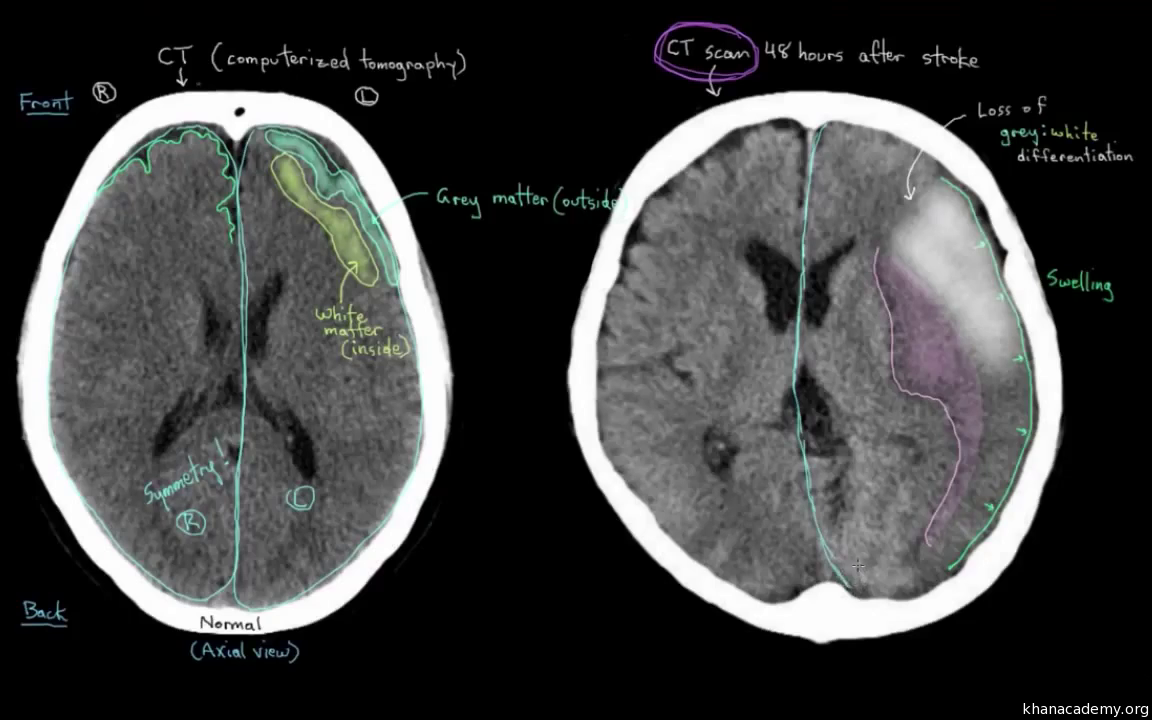 CT (computerized tomography)
Front
R
L
Grey matter (outside)
White
matter
(inside)
Symmetry!
R
L
Back
Normal
(Axial view)
CT scan 48 hours after stroke
Loss of
grey:white
differentiation
Swelling
khanacademy.org